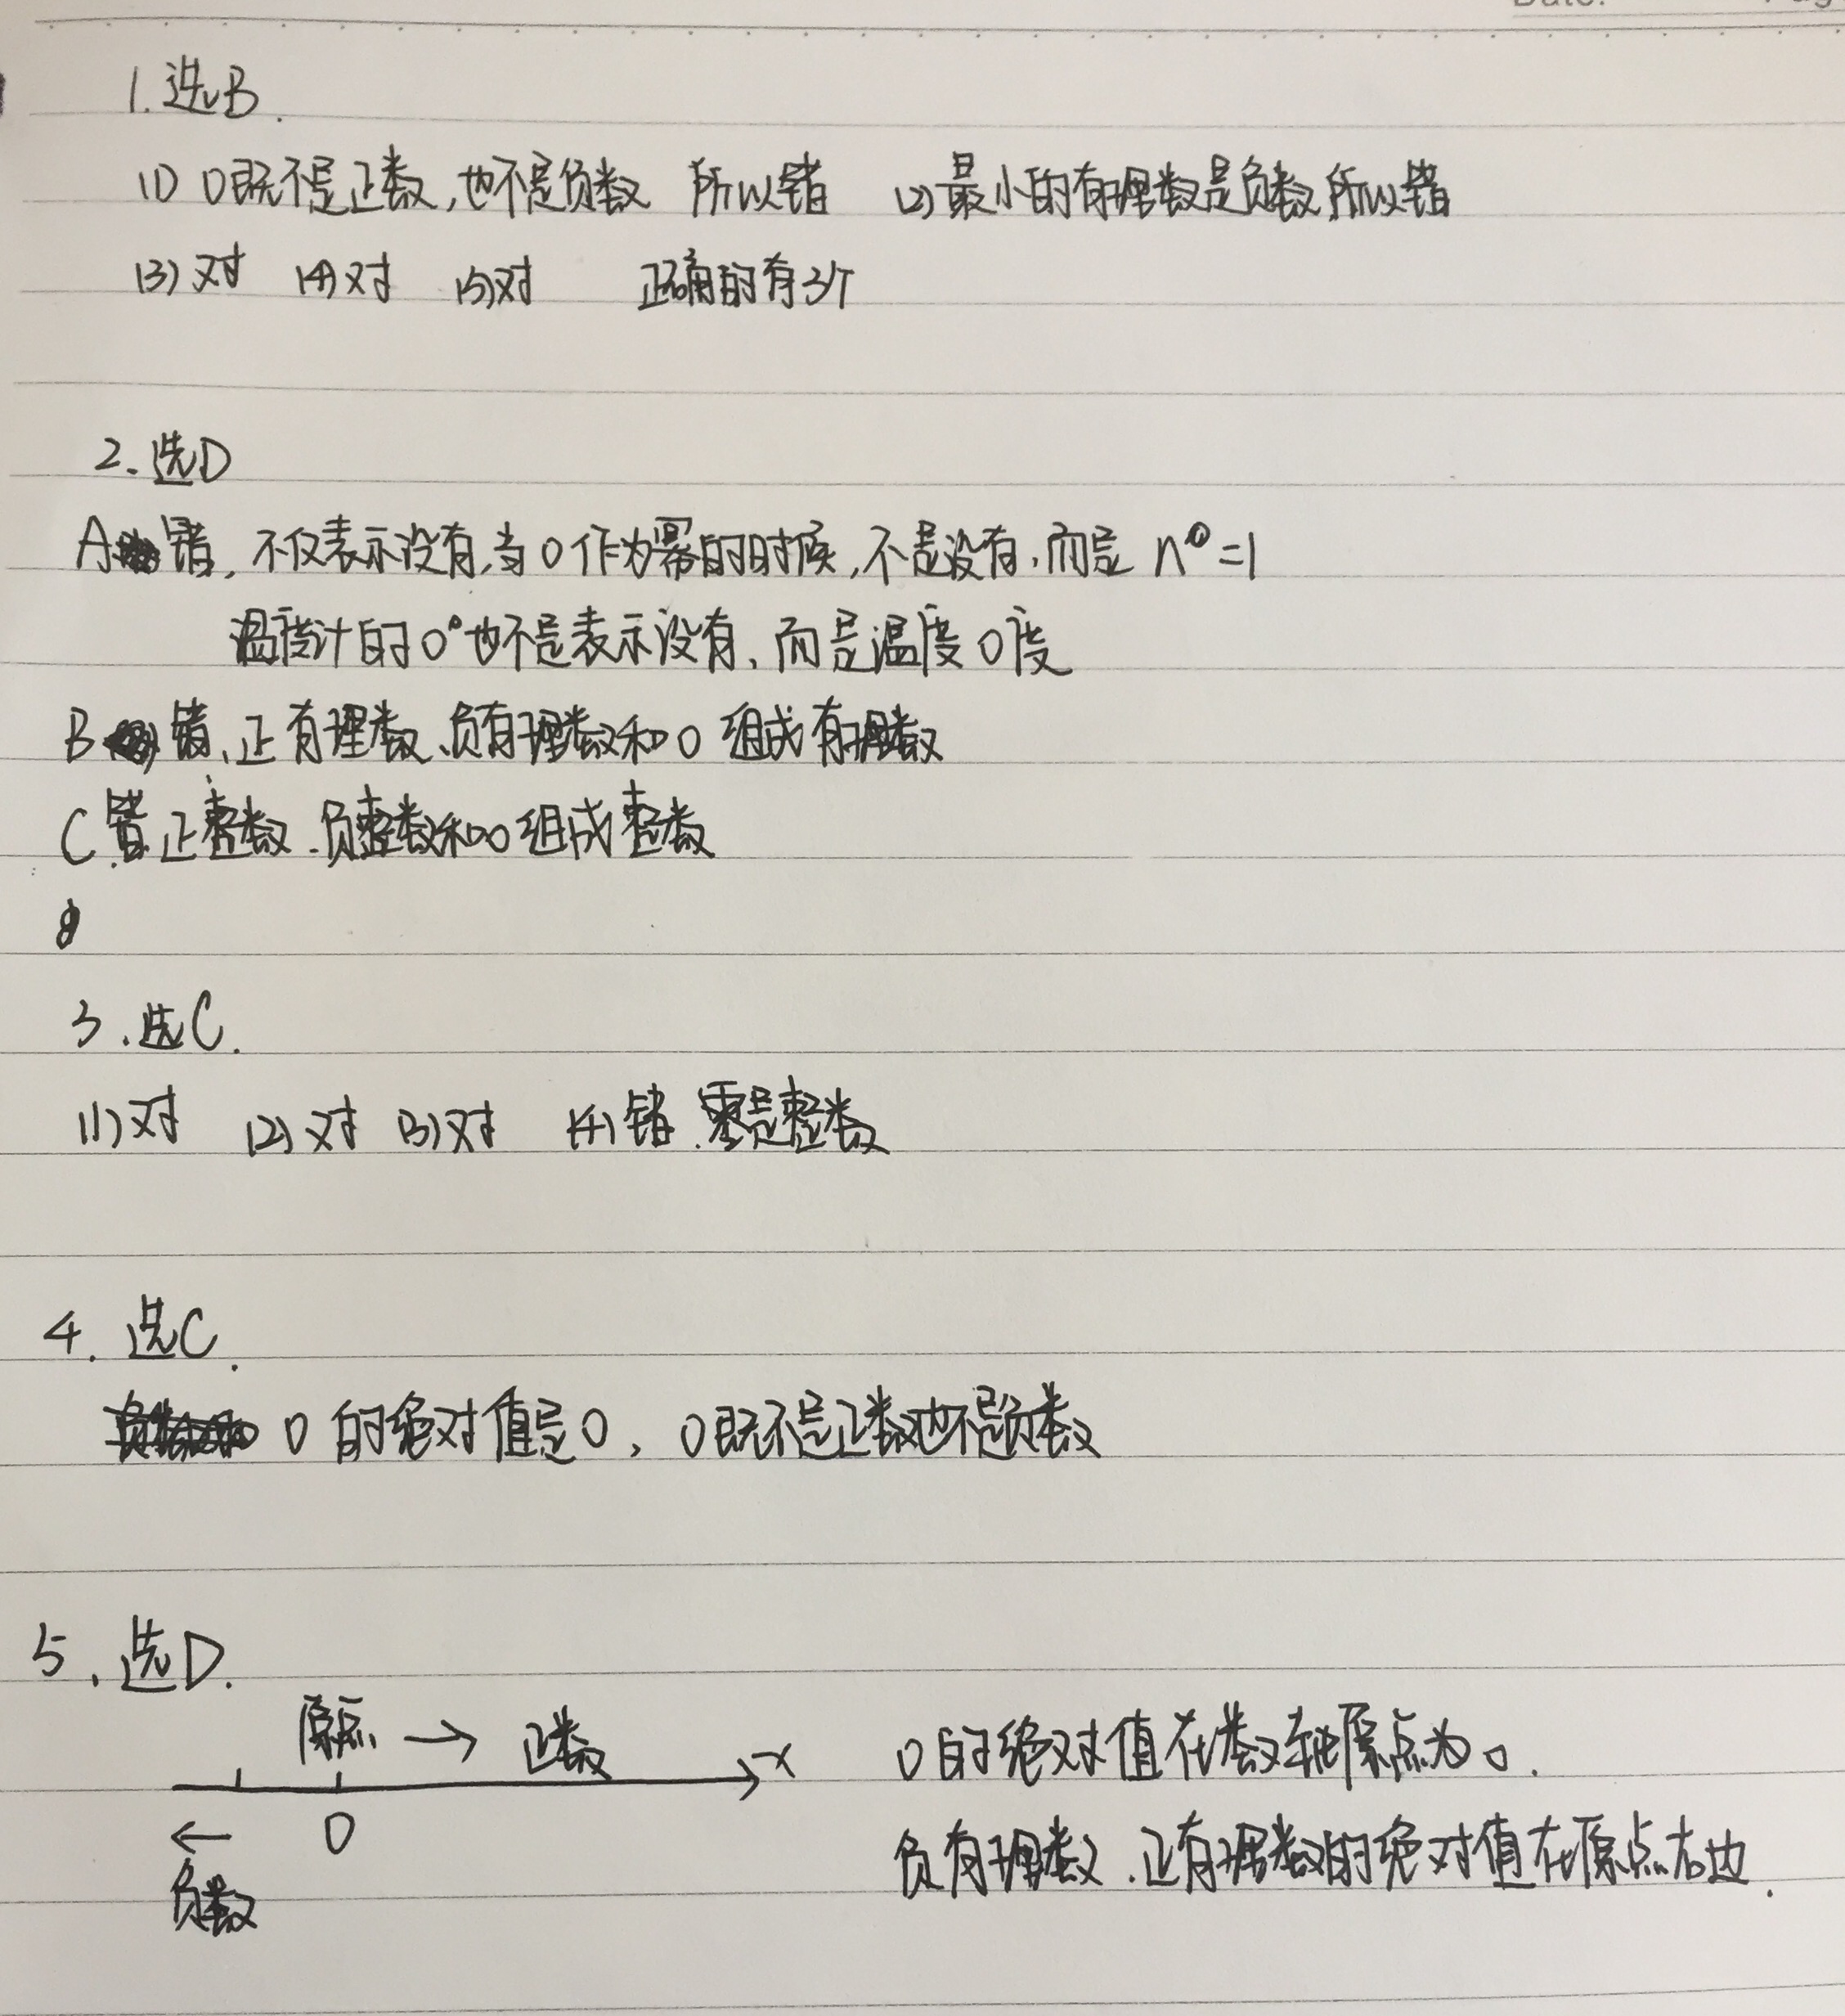 Date:
1. 选B.
(1) 0既不是正数,也不是负数 所以错 (2)最小的有理数是负数所以错
(3)对 (4)对 (5)对 正确的有3个
2. 选D
A 错, 不仅表示没有,当0作为幂的时候,不是没有,而是 n⁰=1
温度计的0°也不是表示没有,而是温度0度
B 错、正有理数、负有理数和0组成有理数
C.错 正整数、负整数和0组成整数
3.选C.
(1)对 (2)对 (3)对 (4)错.零是整数
4. 选C.
0的绝对值是0, 0既不是正数也不是负数
5.选D.
原点 → 正数
x
0的绝对值在数轴原点为0.
← 0
负有理数、正有理数的绝对值在原点右边.
负数